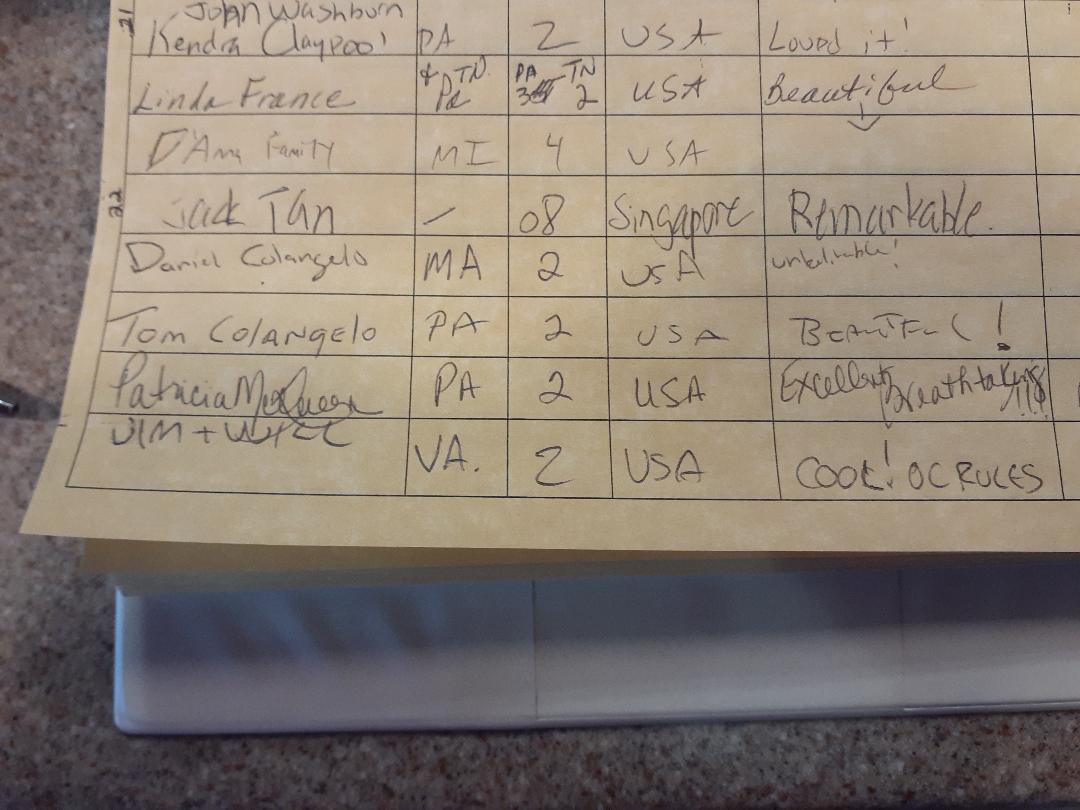 21
John Washburn
Kendra Claypool PA 2 USA Loved it!
Linda France & TN. Pa PA 3 TN 2 USA Beautiful
Family MI 4 USA
22
Jack Tan - 08 Singapore Remarkable.
Daniel Colangelo MA 2 USA unbelivable!
Tom Colangelo PA 2 USA BEAUTIFUL!
Patricia McQueen PA 2 USA Excellent, breathtaking!!!
JIM + VA. 2 USA COOL! OC RULES